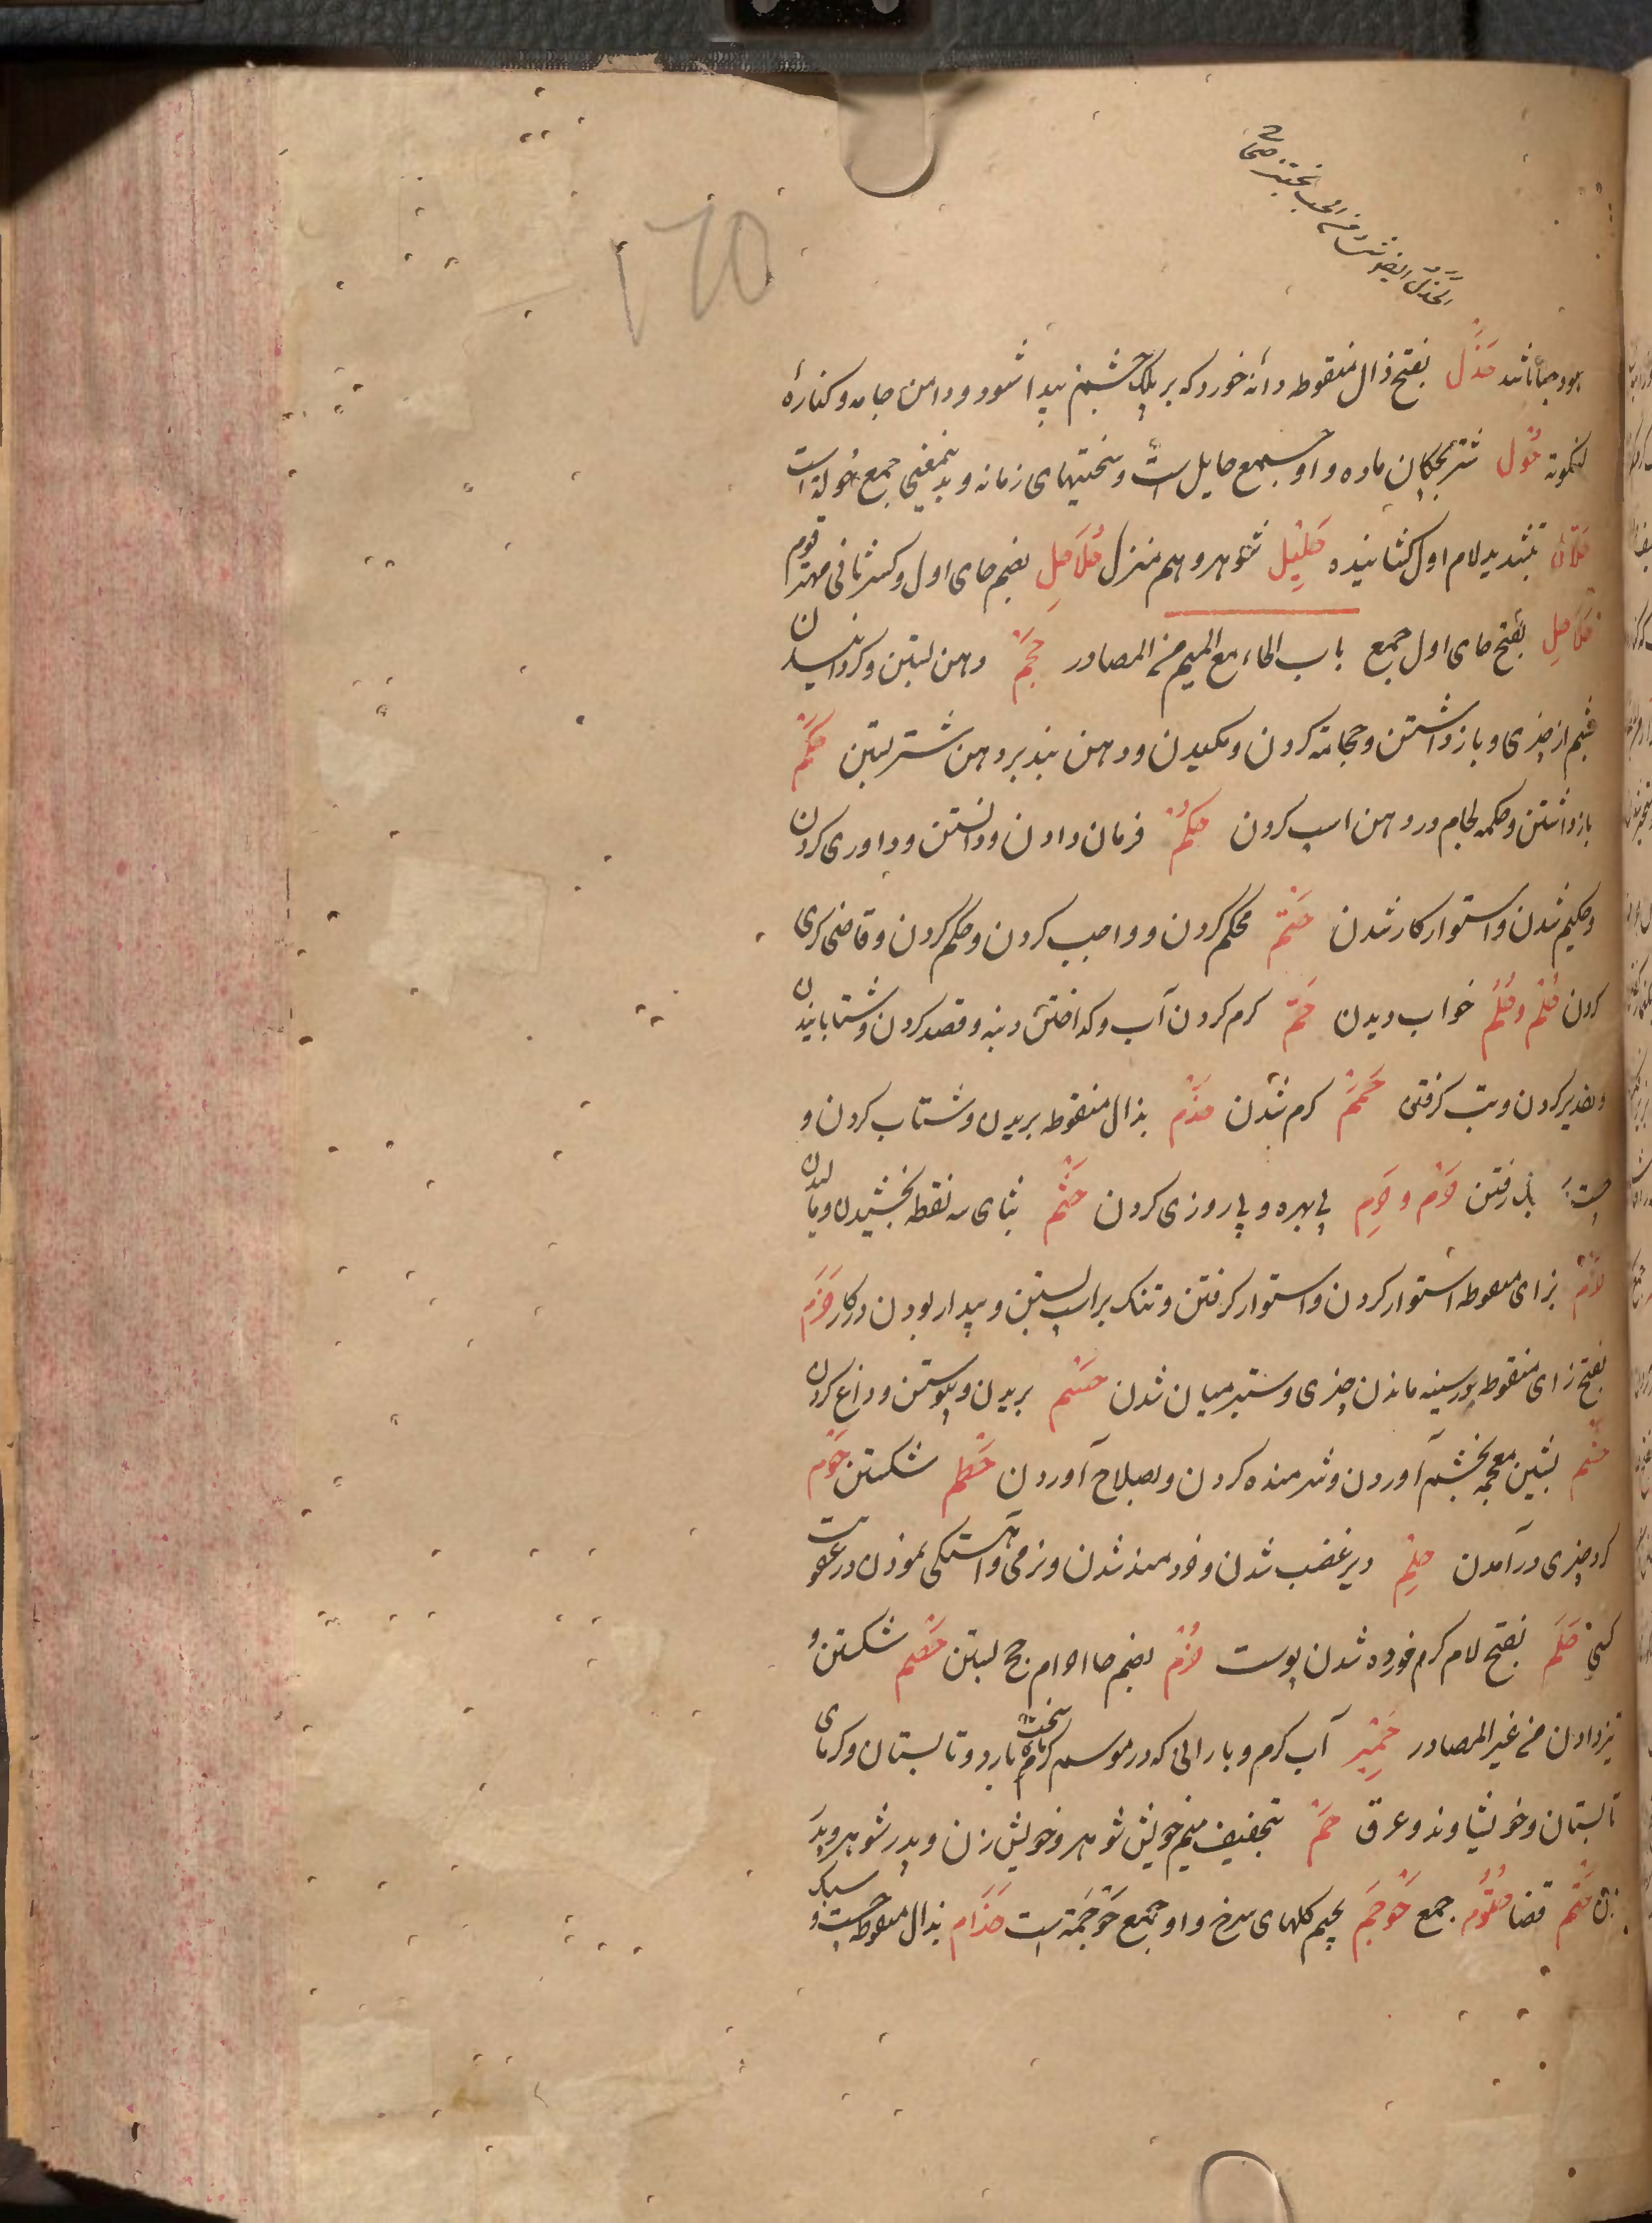 هودجها باشد حَذَل بفتح ذال منقوطه دانه خورد که بر پلک چشم پیدا شود و دامن جامه و کنارهٔ
حُوْل شتر بچکان ماده و او جمع حایل است و سختیهای زمانه و بدینمعنی جمع حُولة است
بتشدید لام اول کشاینده حَلِیْل شوهر و هم منزل حُلاَحِل بضم حای اول و کسر ثانی مهتر قوم
حَلاَحِل بفتح حای اول جمع باب الحاء مع المیم من المصادر حَجْمٌ دهن بستن و کردانیدن
چشم از چیزی و بازداشتن و حجامة کردن و مکیدن و دهن بند بر دهن شتر بستن حَکْمٌ
بازداشتن و حکمه لجام در دهن اسب کردن حُکْمٌ فرمان دادن و دانستن و داوری کردن
و حکیم شدن و استوار کار شدن حَتْمٌ محکم کردن و واجب کردن و حکم کردن و قاضی کری
کردن حُلْم وحُلُم خواب دیدن حَمّ کرم کردن آب و کداختن دنبه و قصد کردن و شتابانیدن
و تقدیر کردن و تب کرفتن حَمَمٌ کرم شدن حَذْم بذال منقوطه بریدن و شتاب کردن و
رفتن حَرْم و حَرِم بی بهره و بی روزی کردن حَثْم بثای سه نقطه بخشیدن و مالیدن
حَزْم بزای منقوطه استوار کردن و استوار کرفتن و تنک بر اسب بستن و بیدار بودن در کار حَزَم
بفتح زای منقوطه در سینه ماندن چیزی و ستبر میان شدن حَسْم بریدن و پیوستن و داغ کردن
حَشْم بشین معجمه بخشم آوردن و شرمنده کردن و بصلاح آوردن حَطْم شکستن حَوْم
کرد چیزی درآمدن حِلْم دیر غضب شدن و خردمند شدن و نرمی و آهستکی نمودن در عقوبت
کسی حَلَم بفتح لام کرم خورده شدن پوست حُرْم بضم حا احرام حج بستن حَصْم شکستن و
تیز دادن من غیر المصادر حَمِیْم آب کرم و بارانی که در موسم کرمای سخت بارد و تابستان و کرمای
تابستان و خویشاوند و عرق حَمٌ بتخفیف میم خویش شوهر و خویش زن و پدر شوهر و پدر
زن حَتْم قضا حُتُوْم جمع حَوْجَم بجیم کلهای سرخ و او جمع حَوْجَمَة است حَذَام بذال منقوطه سبک